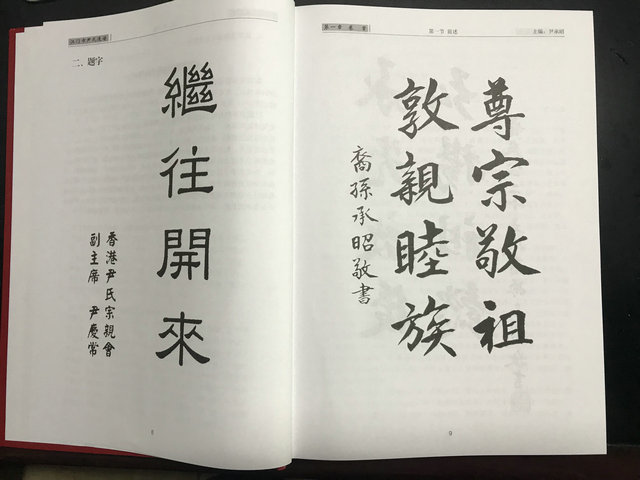 二、题字
繼往開來
香港尹氏宗親會
副主席 尹慶常
6
第一章 卷首
第一节 前述
主编：尹承昭
尊宗敬祖
敦親睦族
裔孫承昭敬書
9